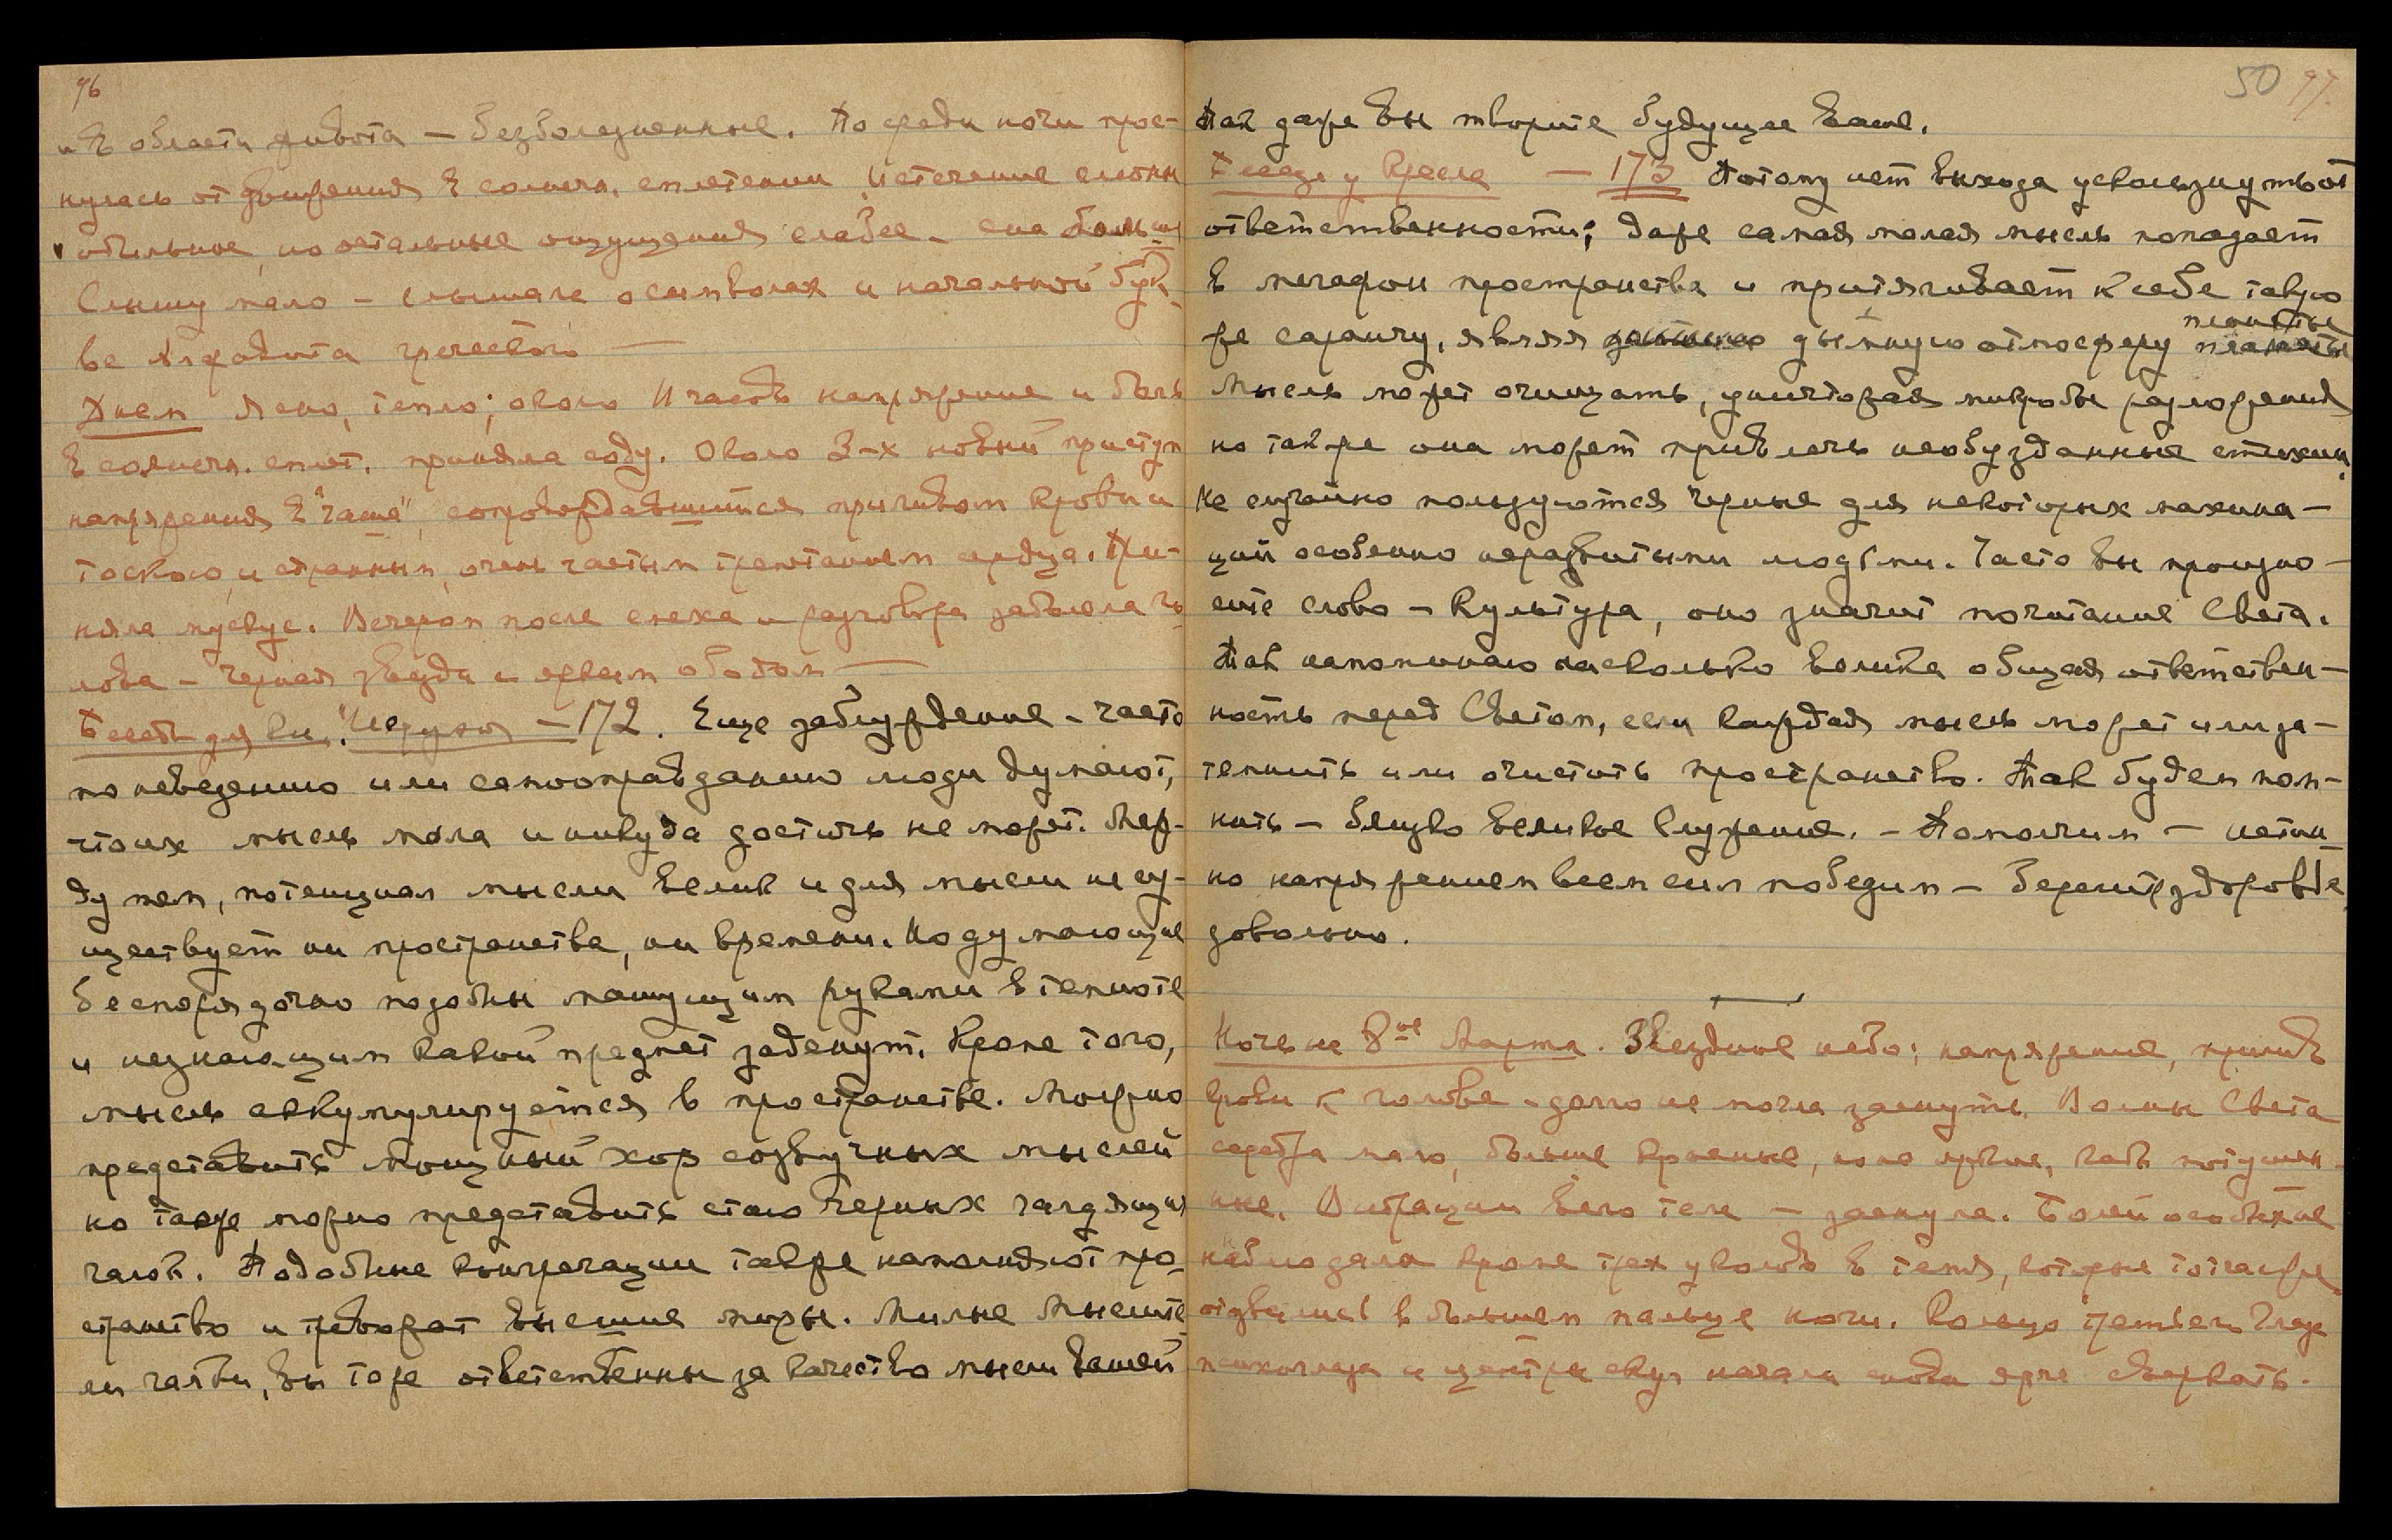 96
и в области живота – безболезненные. По среди ночи прос-
нулась от движения в солнечн. сплетении. Истечение слюны
обильное, но остальные ощущения слабее –
Слышу мало – слышала о символах и начальной бук-
ве Алфавита греческого —
Днем Ясно, тепло; около 11 часов напряжение и боль
в солнечн. сплет. приняла соду. Около 3-х новый приступ
напряжения в "чаше", сопровождавшийся приливом крови и
тоскою, и странным, очень частым трепетанием сердца. При-
няла мускус. Вечером после смеха и разговора заболела го-
лова – черная звезда с ярким ободом —
Беседа для кн. "Иерархия" – 172. Еще заблуждение – часто
по неведению или самооправданию люди думают,
что их мысль мала и никуда достичь не может. Меж-
ду тем, потенциал мысли велик и для мысли не су-
ществует ни пространства, ни времени. Но думающие
беспорядочно подобны машущим руками в темноте
и незнающим какой предмет заденут. Кроме того,
мысль аккумулируется в пространстве. Можно
представить мощный хор созвучных мыслей
но также можно представить стаю черных галдящих
галок. Подобные конгрегации также наполняют про-
странство и тревожат высшие миры. Милые мыслите-
ли галки, вы тоже ответственны за качество мысли вашей
50 97.
Так даже вы творите будущее ваше.
Беседа у Кресла – 173 Потому нет выхода ускользнуть от
ответственности; даже самая малая мысль попадает
в мегафон пространства и притягивает к себе такую
же саранчу, являя дымную атмосферу планеты
Мысль может очищать, уничтожая микробы разложения
но также она может привлечь необузданные стихии.
Не случайно пользуются черные для некоторых махина-
ций особенно неразвитыми людьми. Часто вы произно-
сите слово – Культура, оно значит почитание Света.
Так напоминаю насколько велика общая ответствен-
ность перед Светом, если каждая мысль может или за-
темнить или очистить пространство. Так будем пом-
нить – близко великое служение. – Помолчим – истин-
но напряжением всем сил победим – Берегите здоровье,
довольно.
Ночь на 8ое Марта. Звездное небо; напряжение, прилив
крови к голове – долго не могла заснуть. Волны Света
серебра мало, больше красные, но не яркие, как потушен-
ные. Вибрации всего тела – заснула. Болей особых не
наблюдала кроме трех уколов в темя, которые тотчас же
отдались в большем пальце ноги. Кольцо третьего Глаза
психоглаза и центры скул начали снова ярче сверкать.